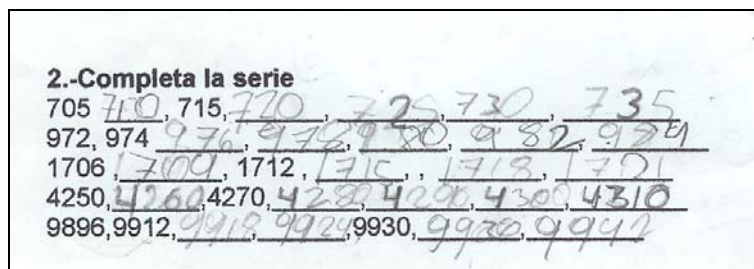 2.-Completa la serie
705 710, 715, 720, 725, 730, 735
972, 974 976, 978, 980, 982, 984
1706, 1709, 1712, 1715, , 1718, 1721
4250, 4260, 4270, 4280, 4290, 4300, 4310
9896,9912, 9918, 9924, 9930, 9936, 9942